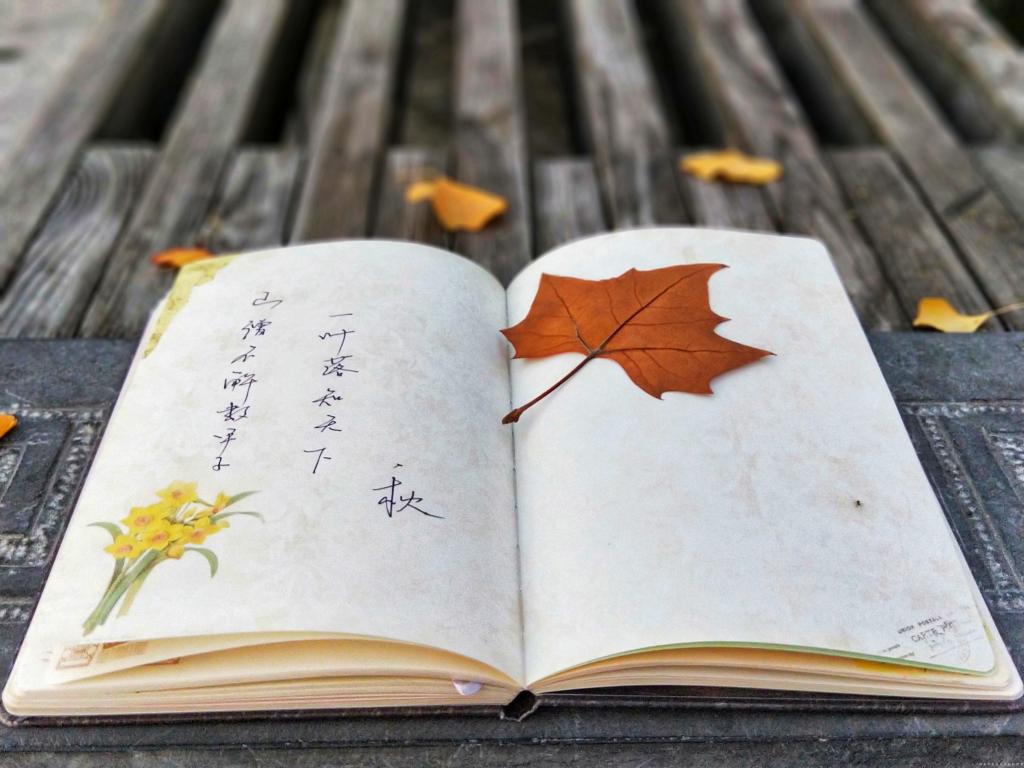 山僧不解数甲子
一叶落知天下
秋
UNION POSTALE
CARTE